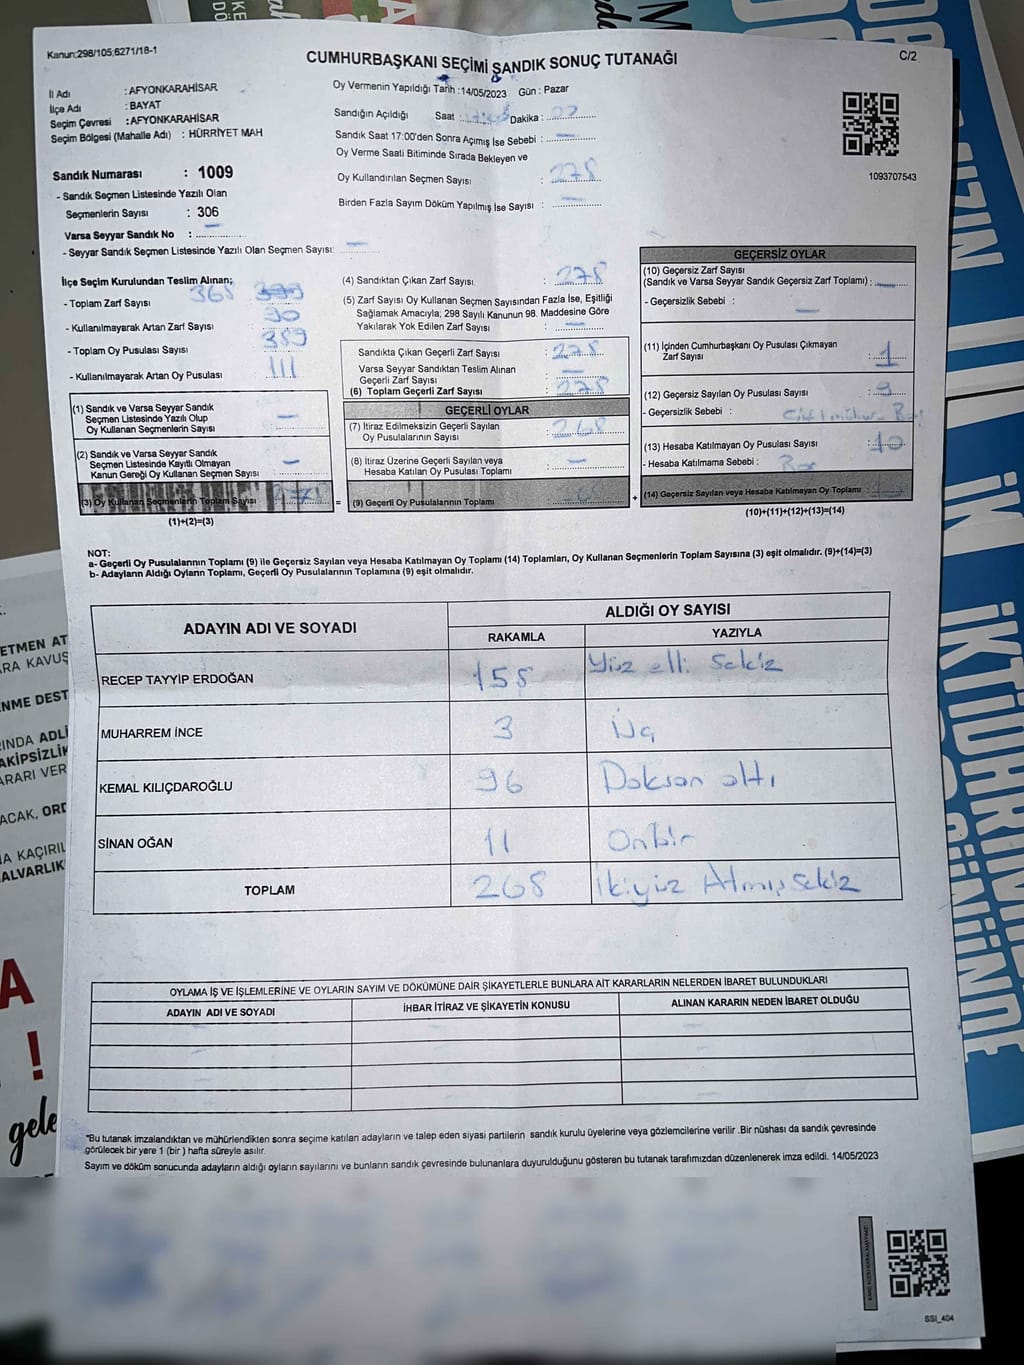 Kanun:298/105;6271/18-1
C/2
CUMHURBAŞKANI SEÇİMİ SANDIK SONUÇ TUTANAĞI
İl Adı : AFYONKARAHİSAR
İlçe Adı : BAYAT
Seçim Çevresi : AFYONKARAHİSAR
Seçim Bölgesi (Mahalle Adı) : HÜRRİYET MAH
Oy Vermenin Yapıldığı Tarih :14/05/2023 Gün : Pazar
Sandığın Açıldığı Saat : Dakika :
Sandık Saat 17:00'den Sonra Açımış İse Sebebi : —
Oy Verme Saati Bitiminde Sırada Bekleyen ve
Oy Kullandırılan Seçmen Sayısı : 278
Birden Fazla Sayım Döküm Yapılmış İse Sayısı : —
1093707543
Sandık Numarası : 1009
- Sandık Seçmen Listesinde Yazılı Olan
Seçmenlerin Sayısı : 306
Varsa Seyyar Sandık No : —
- Seyyar Sandık Seçmen Listesinde Yazılı Olan Seçmen Sayısı: —
İlçe Seçim Kurulundan Teslim Alınan;
- Toplam Zarf Sayısı 368
- Kullanılmayarak Artan Zarf Sayısı 90
- Toplam Oy Pusulası Sayısı 389
- Kullanılmayarak Artan Oy Pusulası 111
(1) Sandık ve Varsa Seyyar Sandık
Seçmen Listesinde Yazılı Olup
Oy Kullanan Seçmenlerin Sayısı —
(2) Sandık ve Varsa Seyyar Sandık
Seçmen Listesinde Kayıtlı Olmayan
Kanun Gereği Oy Kullanan Seçmen Sayısı —
(3) Oy Kullanan Seçmenlerin Toplam Sayısı 278 =
(1)+(2)=(3)
(4) Sandıktan Çıkan Zarf Sayısı : 278
(5) Zarf Sayısı Oy Kullanan Seçmen Sayısından Fazla İse, Eşitliği
Sağlamak Amacıyla; 298 Sayılı Kanunun 98. Maddesine Göre
Yakılarak Yok Edilen Zarf Sayısı : —
Sandıkta Çıkan Geçerli Zarf Sayısı : 278
Varsa Seyyar Sandıktan Teslim Alınan
Geçerli Zarf Sayısı : —
(6) Toplam Geçerli Zarf Sayısı : 278
GEÇERLİ OYLAR
(7) İtiraz Edilmeksizin Geçerli Sayılan
Oy Pusulalarının Sayısı : 268
(8) İtiraz Üzerine Geçerli Sayılan veya
Hesaba Katılan Oy Pusulası Toplamı : —
(9) Geçerli Oy Pusulalarının Toplamı +
GEÇERSİZ OYLAR
(10) Geçersiz Zarf Sayısı
(Sandık ve Varsa Seyyar Sandık Geçersiz Zarf Toplamı) : —
- Geçersizlik Sebebi : —
(11) İçinden Cumhurbaşkanı Oy Pusulası Çıkmayan
Zarf Sayısı : 1
(12) Geçersiz Sayılan Oy Pusulası Sayısı : 9
- Geçersizlik Sebebi :
(13) Hesaba Katılmayan Oy Pusulası Sayısı : 10
- Hesaba Katılmama Sebebi :
(14) Geçersiz Sayılan veya Hesaba Katılmayan Oy Toplamı :
(10)+(11)+(12)+(13)=(14)
NOT:
a- Geçerli Oy Pusulalarının Toplamı (9) ile Geçersiz Sayılan veya Hesaba Katılmayan Oy Toplamı (14) Toplamları, Oy Kullanan Seçmenlerin Toplam Sayısına (3) eşit olmalıdır. (9)+(14)=(3)
b- Adayların Aldığı Oyların Toplamı, Geçerli Oy Pusulalarının Toplamına (9) eşit olmalıdır.
ADAYIN ADI VE SOYADI
ALDIĞI OY SAYISI
RAKAMLA YAZIYLA
RECEP TAYYİP ERDOĞAN 158 Yüz elli sekiz
MUHARREM İNCE 3 Üç
KEMAL KILIÇDAROĞLU 96 Doksan altı
SİNAN OĞAN 11 Onbir
TOPLAM 268 İkiyüz Atmış sekiz
OYLAMA İŞ VE İŞLEMLERİNE VE OYLARIN SAYIM VE DÖKÜMÜNE DAİR ŞİKAYETLERLE BUNLARA AİT KARARLARIN NELERDEN İBARET BULUNDUKLARI
ADAYIN ADI VE SOYADI İHBAR İTİRAZ VE ŞİKAYETİN KONUSU ALINAN KARARIN NEDEN İBARET OLDUĞU
*Bu tutanak imzalandıktan ve mühürlendikten sonra seçime katılan adayların ve talep eden siyasi partilerin sandık kurulu üyelerine veya gözlemcilerine verilir .Bir nüshası da sandık çevresinde
görülecek bir yere 1 (bir ) hafta süreyle asılır.
Sayım ve döküm sonucunda adayların aldığı oyların sayılarını ve bunların sandık çevresinde bulunanlara duyurulduğunu gösteren bu tutanak tarafımızdan düzenlenerek imza edildi. 14/05/2023
SSI_404
ETMEN AT
ARA KAVUŞ
NME DEST
RINDA ADLİ
AKİPSİZLİK
ARARI VER
ACAK, ORD
A KAÇIRIL
ALVARLIK
A
!
gele